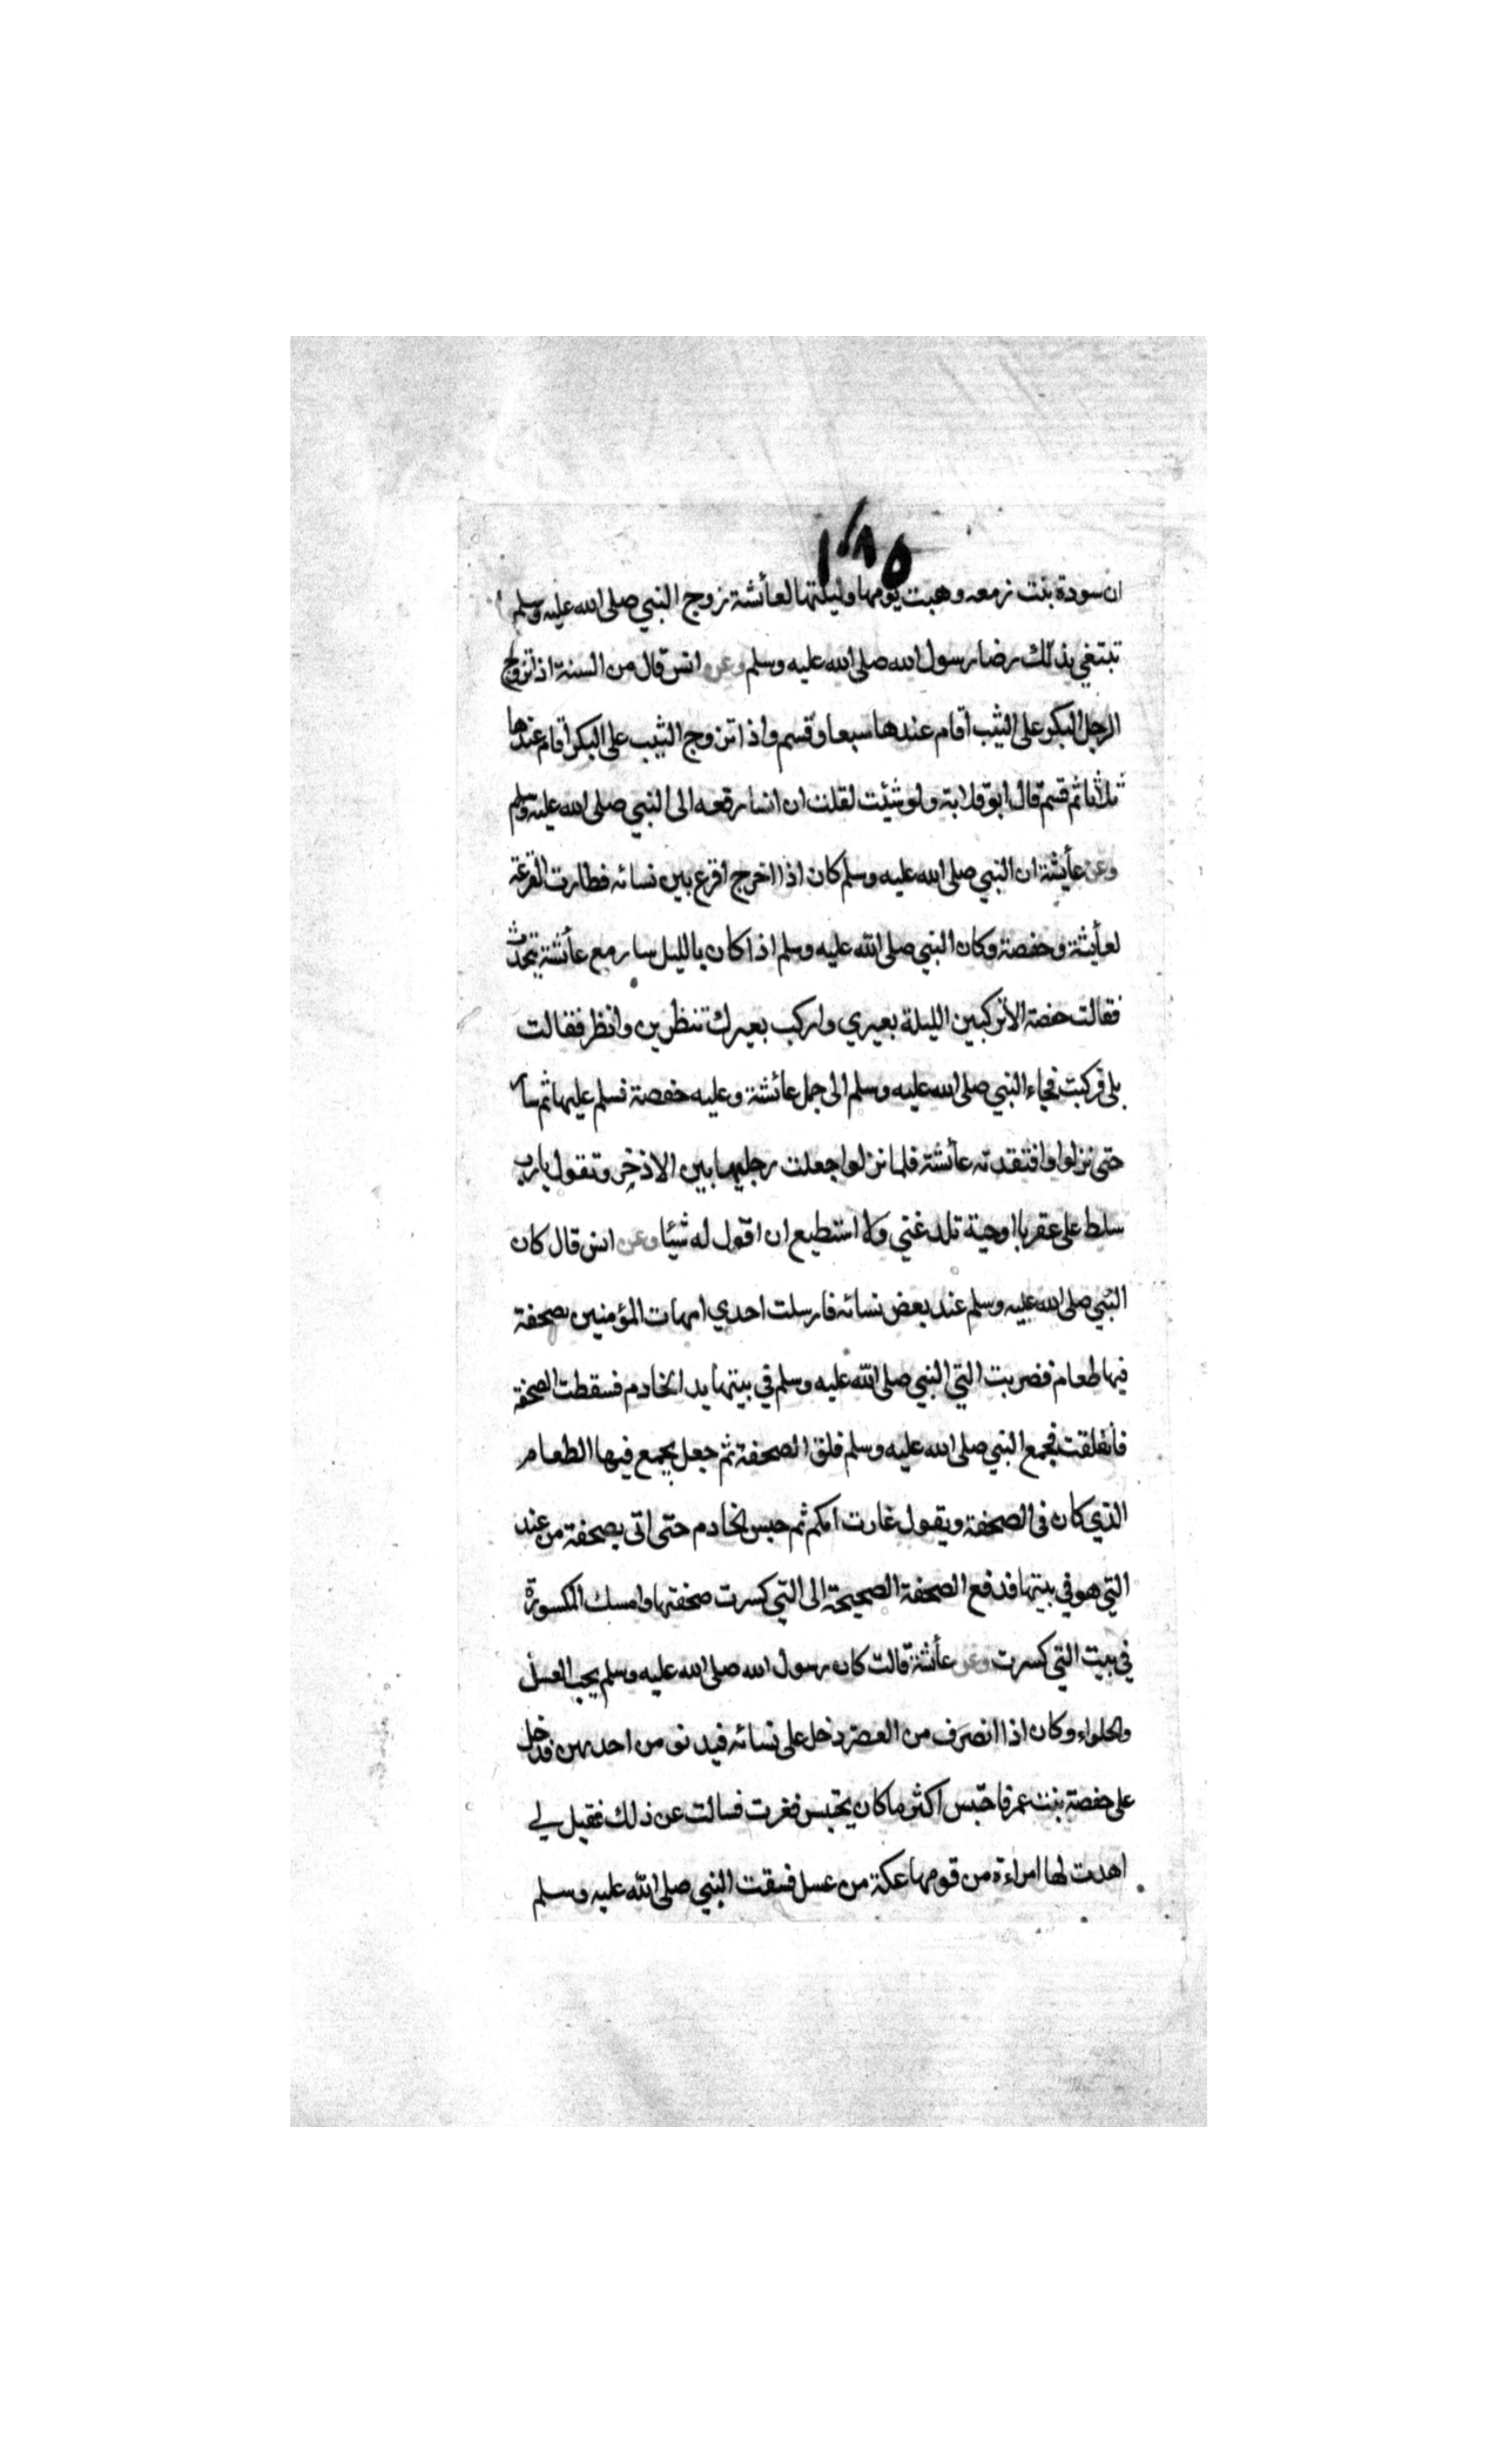 ١٠٨٥
ان سودة بنت زمعه وهبت يومها وليلتها لعائشة زوج النبي صلى الله عليه وسلم
تبتغي بذلك رضا رسول الله صلى الله عليه وسلم وعن انس قال من السنة اذا تزوج
الرجل البكر على الثيب اقام عندها سبعا وقسم واذا تزوج الثيب على البكر اقام عندها
ثلاثا ثم قسم قال ابو قلابة ولو شئت لقلت ان انسا رفعه الى النبي صلى الله عليه وسلم
وعن عائشة ان النبي صلى الله عليه وسلم كان اذا اخرج اقرع بين نسائه فطارت القرعة
لعائشة وحفصة وكان النبي صلى الله عليه وسلم اذا كان بالليل سار مع عائشة يتحدث
فقالت حفصة الا تركبين الليلة بعيري واركب بعيرك تنظرين وانظر فقالت
بلى فركبت فجاء النبي صلى الله عليه وسلم الى جمل عائشة وعليه حفصة فسلم عليها ثم سار
حتى نزلوا وافتقدته عائشة فلما نزلوا جعلت رجليها بين الاذخر وتقول يارب
سلط على عقربا او حية تلدغني ولا استطيع ان اقول له شيئا وعن انس قال كان
النبي صلى الله عليه وسلم عند بعض نسائه فارسلت احدي امهات المؤمنين بصحفة
فيها طعام فضربت التي النبي صلى الله عليه وسلم في بيتها يد الخادم فسقطت الصحفة
فانفلقت فجمع النبي صلى الله عليه وسلم فلق الصحفة ثم جعل يجمع فيها الطعام
الذي كان في الصحفة ويقول غارت امكم ثم حبس الخادم حتى اتى بصحفة من عند
التي هو في بيتها فدفع الصحفة الصحيحة الى التي كسرت صحفتها وامسك المكسورة
في بيت التي كسرت وعن عائشة قالت كان رسول الله صلى الله عليه وسلم يحب العسل
والحلواء وكان اذا انصرف من العصر دخل على نسائه فيدنو من احديهن فدخل
على حفصة بنت عمر فاحتبس اكثر ما كان يحتبس فغرت فسالت عن ذلك فقيل لي
اهدت لها امراءة من قومها عكة من عسل فسقت النبي صلى الله عليه وسلم